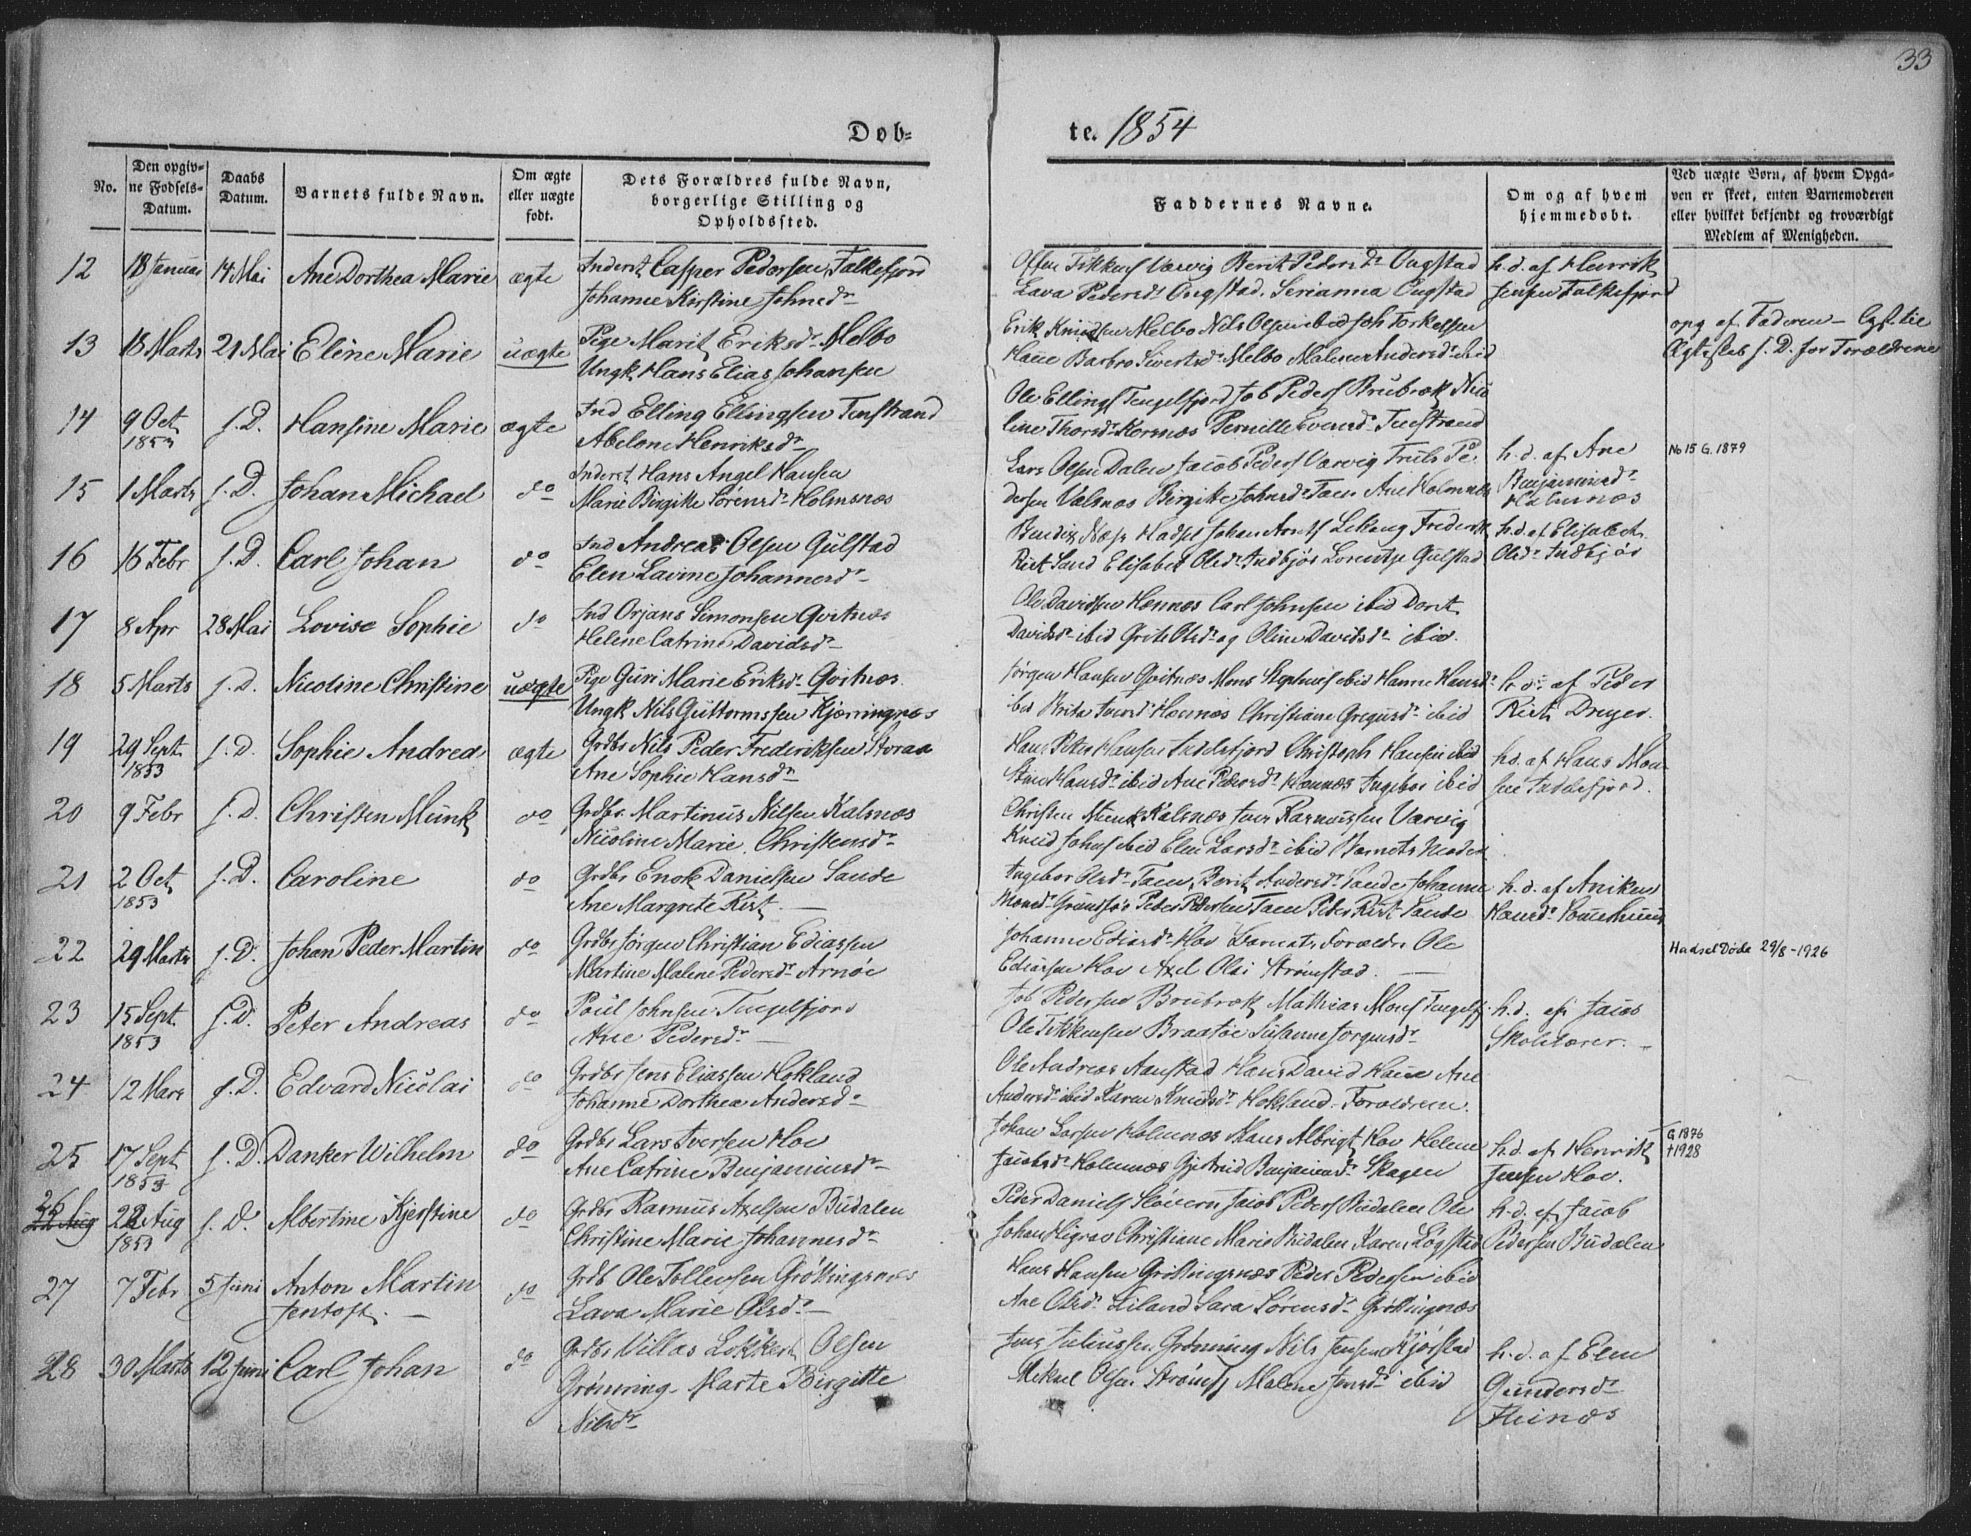 33
Døb-
te. 1854
No.
Den opgiv-
ne Fødsels-
Datum.
Daabs
Datum.
Barnets fulde Navn.
Om ægte
eller uægte
født.
Dets Forældres fulde Navn,
borgerlige Stilling og
Opholdssted.
Faddernes Navne.
Om og af hvem
hjemmedøbt.
Ved uægte Børn, af hvem Opga-
ven er skeet, enten Barnemoderen
eller hvilket bekjendt og troværdigt
Medlem af Menigheden.
12 18 Januar 14 Mai Ane Dorthea Marie ægte
Inderst Casper Pedersen Falkefjord
Johanne Kirstine Johnsdr
Berit Pedersdr Ongstad
Lava Pedersdr Ongstad. Serianna Ongstad
h.d. af Henrik
Jensen Falkefjord
13 18 Marts 21 Mai Eline Marie uægte
Pige Marit Eriksdr Melbo
Ungk Hans Elias Johansen
Erik Knudsen Melbo Nils Olsen ibid Joh Torkelsen
Haue Barbro Sivertsdr Melbo Malene Andersdr ibid
opg af Faderen
Ægteskab f. D. for Forældrene
14 9 Oct 1853 f. D. Hansine Marie ægte
Ind Elling Ellingsen Finstrand
Abelone Henriksdr
Ole Ellings Tengelfjord Job Peders Brubræk Nico
line Thorsdr Korsnæs Pernille Evensdr
15 1 Marts f. D. Johan Michael do
Inderst Hans Angel Hansen
Marie Birgitte Sørensdr Holmsnæs
Lars Olsen Dalen Jacob Peders Varvig Truls Pe-
dersen Valsnæs Birgitte Johnsdr Taen Ane Holmnæs
h.d. af Ane
Benjaminsdr
Holmnæs
No 15 G. 1879
16 16 Febr f. D. Carl Johan do
Ind Andreas Olsen Gulstad
Elen Lavine Johannesdr
Hadsel Johan Lekang Frederik
Rist Sand Elisabet Olsdr Indbjør Lorentse Gulstad
h.d. af Elisabeth
Olsdr Indbjør
17 8 Apr 28 Mai Lovise Sophie do
Ind Orjans Simonsen Qvitnæs
Helene Catrine Davidsdr
Ole Davidsen Hennæs Carl Johnsen ibid Dorit
Davidsdr ibid Grite Olsdr og Oline Davidsdr ibid.
18 5 Marts f. D. Nicoline Christine uægte
Pige Guri Marie Eriksdr Qvitnæs
Ungk Nils Guttormssen Kjerringnæs
Jørgen Hansen Qvitnæs Mons Stephens ibid Hanne Hansdr
ibid Brita Iversdr Hennæs Christiane Gregusdr ibid
h.d. af Peder
Rist Dreyer.
19 29 Sept. 1853 f. D. Sophie Andrea ægte
Grdbr Nils Peder Frederiksen Storaa
Ane Sophie Hansdr
Hans Peter Hansen Indlefjord Christoph Hansen ibid
Stine Hansdr ibid Ane Pedersdr Hennæs Ingebor ibid
h.d. af Hans Mon
sen Indlefjord.
20 9 Febr f. D. Christen Munk do
Grdbr. Martinus Nilsen Kalsnæs
Nicoline Marie Christensdr
Christen Munk Kalsnæs Iver Rasmussen Varvig
Knud Johns ibid Elen Larsdr ibid Barnets Moder
21 2 Oct 1853 f. D. Caroline do
Grdbr Enok Danielsen Sande
Ane Margrete Rist
Ingebor Olsdr Taen, Berit Andersdr Sande Johanne
Monsdr Grundfør Peder Pedersen Taen Peter Rist Sande
h.d. af Aniken
Hansdr
22 29 Marts f. D. Johan Peder Martin do
Grdbr Jørgen Christian Ediassen
Martine Malene Pedersdr Arnøe
Johanne Ediasdr Hov Barnets Forældre Ole
Ediassen Hov Axel Olai Strømstad.
Hadsel Døde 29/8 - 1926
23 15 Sept. 1853 f. D. Peter Andreas do
Paul Johnsen Tengelfjord
Ane Pedersdr
Job Pedersen Brubræk Mathias Mons Tengelfj.
Ole Braatøe Susanne Jørgensdr
h.d. af Jacob
Skolelærer.
24 12 Mars f. D. Edvard Nicolai do
Grdbr Jens Eliassen Hokland
Johanne Dorthea Andersdr
Ole Andreas Aanstad Hans David Haue Ane
Andersdr ibid Karen Knudsdr Hokland. Forældrene.
25 17 Sept 1853 f. D. Danker Wilhelm do
Grdbr Lars Iversen Hov
Ane Catrine Benjaminsdr
Johan Larsen Holmnæs Hans Albrigt Hov Helene
Jacobsdr Holmnæs Gjertrud Benjaminsdr Skagen
h.d. af Henrik
Jensen Hov.
G 1876
† 1928
26 22 Aug 1853 f. D. Albertine Kjerstine do
Grdbr Rasmus Axelsen Budalen
Christine Marie Johannesdr
Peder Daniels Jacob Peders Budalen Ole
Johan Higrav Christiane Marie Budalen Karen Løgstad
h.d. af Jacob
Pedersen Budalen
27 7 Febr 5 Juni Anton Martin
Jentoft. do
Grdb Ole Tollevsen Grøttingsnæs
Lava Marie Olsdr
Hans Hansen Grøttingsnæs Peder Pedersen ibid
Ane Olsdr Sara Sørensdr Grøttingnæs
28 30 Marts 12 Juni Carl Johan do
Grdbr Villas Løkkert Olsen
Grønning Marte Birgitte
Nilsdr
Jens Juliussen Grønning Nils Jensen Kjørstad
Mikael Olsen Malene Jensdr ibid
h.d. af Elen
Gundersdr